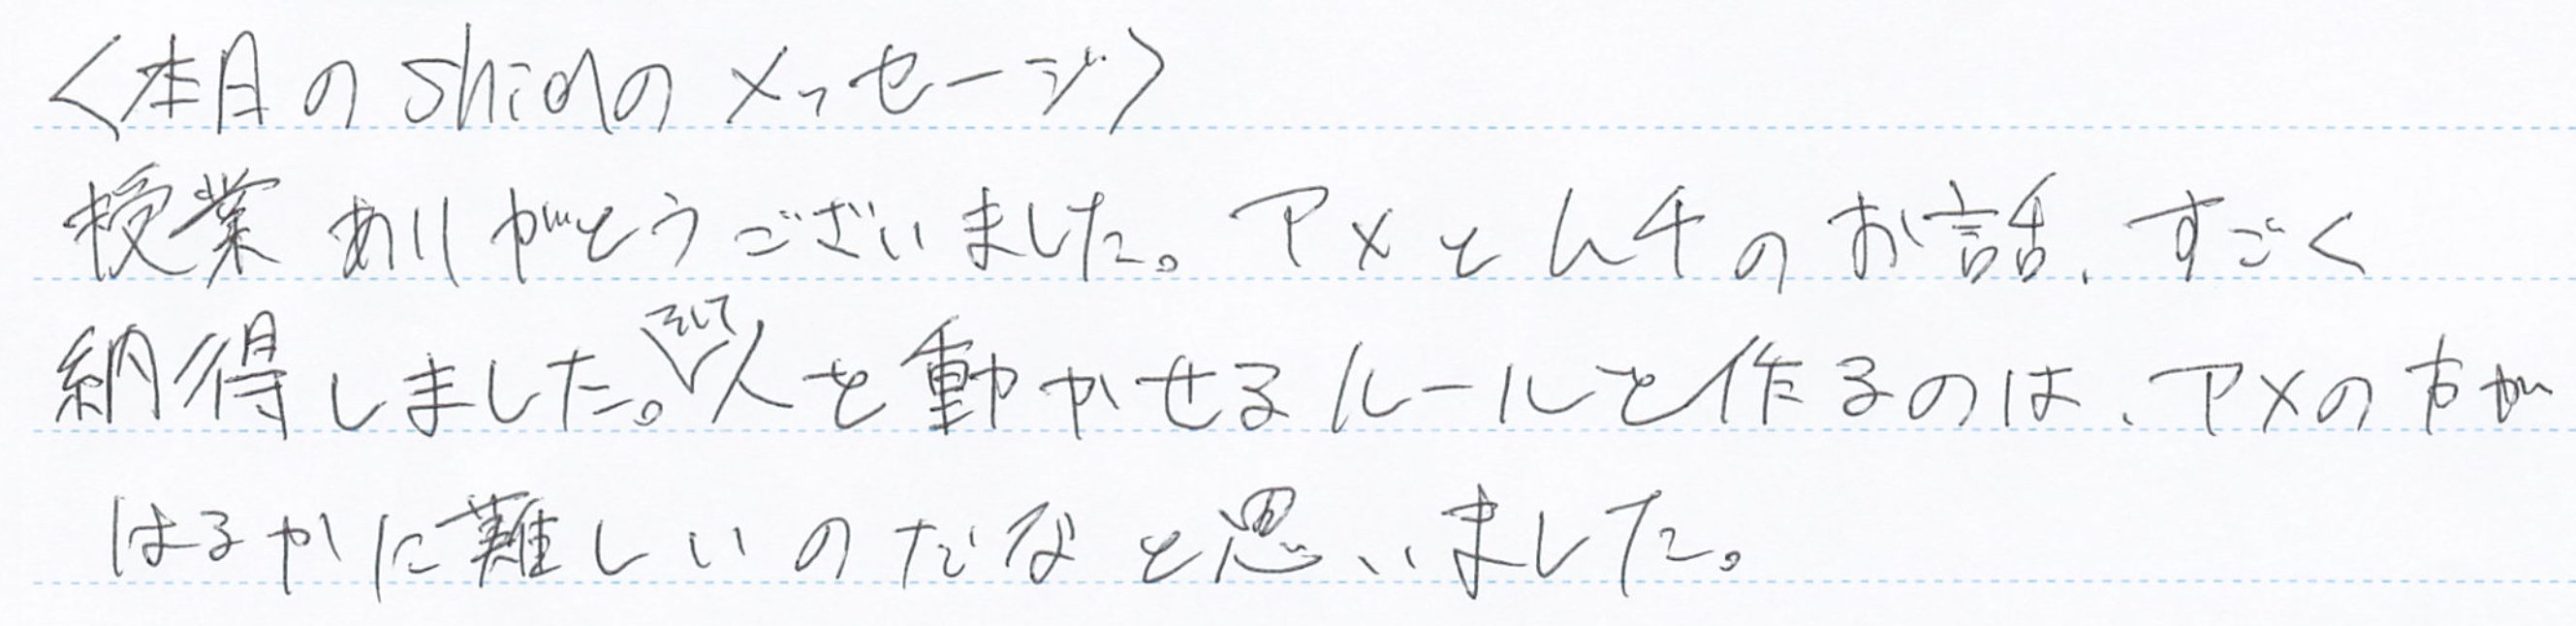 <本日のshiohのメッセージ>
授業ありがとうございました。アメとムチのお話、すごく
納得しました。そして人を動かせるルールを作るのは、アメの方が
はるかに難しいのだなと思いました。